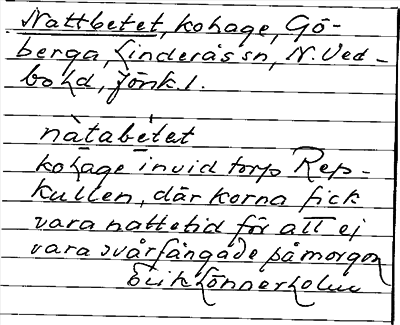 Nattbetet, kohage, Gö-
berga, Linderås sn, N. Ved-
bo hd, Jönk. l.
nàtabétet
kohage invid torp Rep-
kullen, där korna fick
vara nattetid för att ej
vara svårfångade på morgon
Erik Lönnerholm